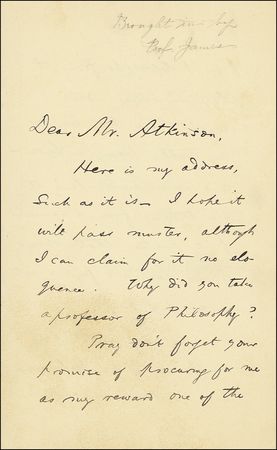 Brought in by
Prof. James
Dear Mr. Atkinson,
Here is my address,
Such as it is — I hope it
will pass muster, although
I can claim for it no elo-
quence. Why did you take
a professor of Philosophy?
Pray don't forget your
promise of procuring for me
as my reward one of the